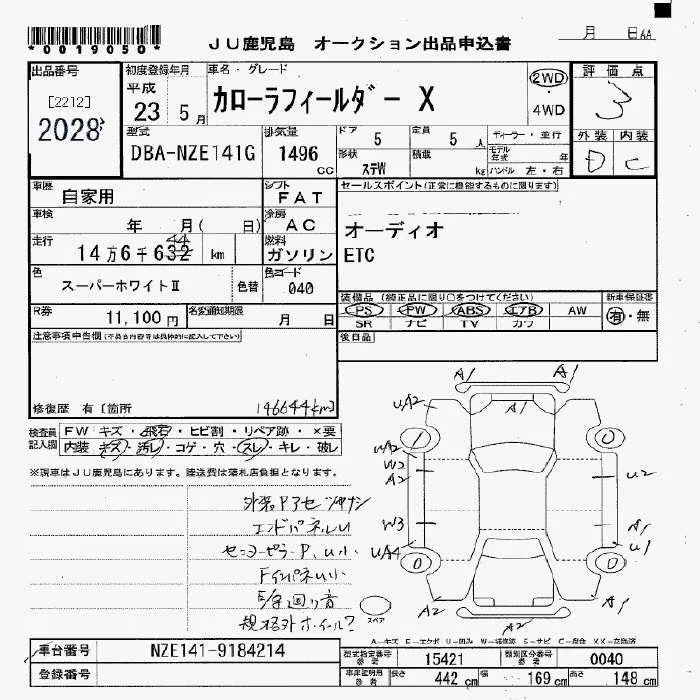 *0019050*
JU鹿児島 オークション出品申込書
月 日
出品番号
[2212]
2028
初度登録年月
平成
23 5月
車名・グレード
カローラフィールダー X
2WD
4WD
評価点
3
外装 内装
D C
型式
DBA-NZE141G
排気量
1496 cc
ドア 5
定員 5人
形状 ステW
積載 kg
ディーラー・並行
モデル年式 年
ハンドル 左・右
車歴 自家用
シフト FAT
セールスポイント(正常に機能するものに限ります)
車検 年 月( 日)
冷房 AC
オーディオ
走行 14万6千632 44 km
燃料 ガソリン
ETC
色 スーパーホワイトⅡ
色替
色コード 040
装備品(純正品に限り○をつけてください)
新車保証書
R券 11,100円
名変通知期限 月 日
PS PW ABS エアB AW
有・無
SR ナビ TV カワ
注意事項申告欄(不具合内容等は具体的に記入して下さい)
後日品
修復歴 有[箇所
146644km]
検査員記入欄
FW キズ・飛石・ヒビ割・リペア跡・×要
内装 キズ・汚レ・コゲ・穴・スレ・キレ・破レ
※現車はJU鹿児島にあります。陸送費は落札店負担となります。
エンドパネルU
規格外ホイール?
A1 A1
A1
UA2
W2
A2
U2
W3
A1
UA4
U1
A2
A2
A1
スペア
A-キズ E-エクボ U-凹み W-補修跡 S-サビ C-腐食 XX-交換済
車台番号 NZE141-9184214
登録番号
型式指定番号 参考 15421
類別区分番号 参考 0040
車庫証明用 参考 長さ 442 cm 幅 169 cm 高さ 148 cm